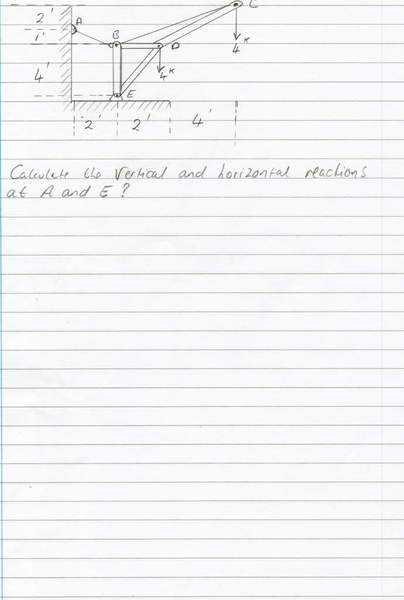 2'
A
C
1'
B
D
4ᵏ
4'
4ᵏ
E
2'
2'
4'
Calculate the vertical and horizontal reactions
at A and E ?